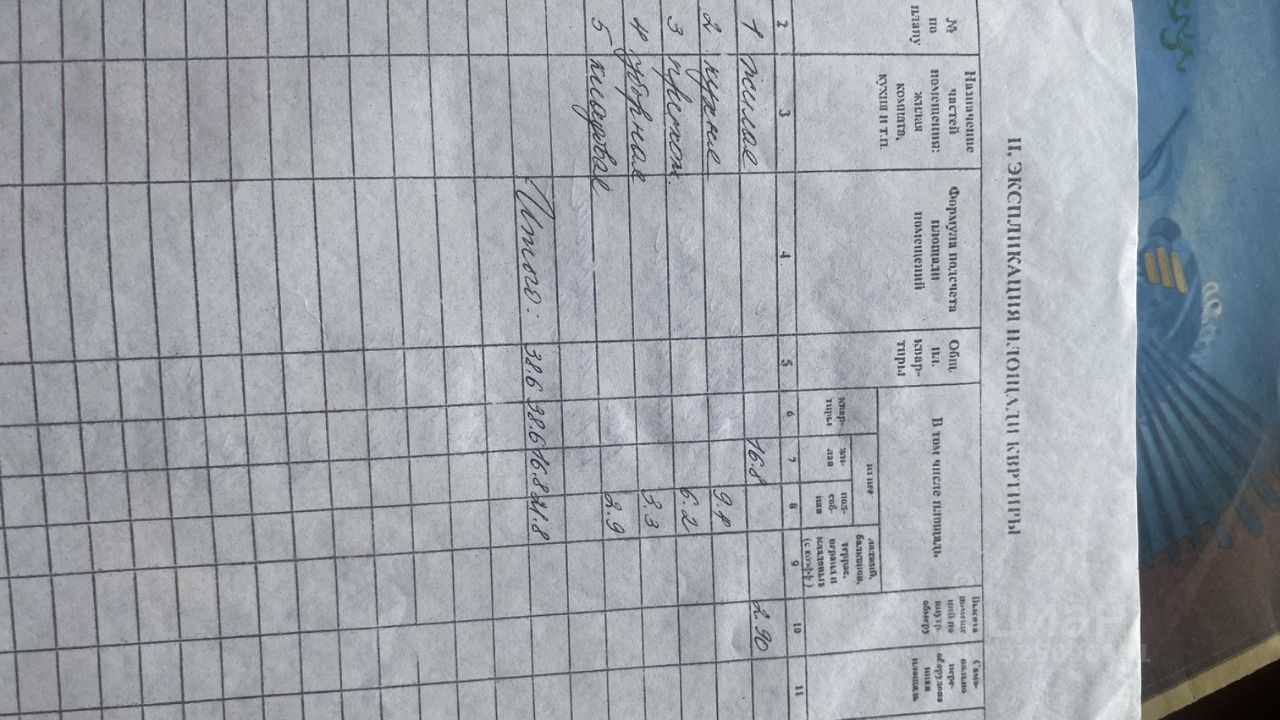 II. ЭКСПЛИКАЦИЯ ПЛОЩАДИ КВРТИРЫ
№ по плану
Назначение частей помещения: жилая комната, кухня и т.п.
Формула подсчета площади помещений
Общ. пл. квар-тиры
В том числе площадь
квар-тиры
из нее
жи-лая
под-соб-ная
лоджий, балконов, террас, веранд и кладовых (с коэфф)
Высота помеще ний по внутр. обмеру
Само-вольно пере-оборудова нная площадь
2 3 4 5 6 7 8 9 10 11
1 жилая 16.8 2.90
2 кухня
3 6.2
4 уборная 3.3
5 кладовая 2.9
Итого: 38.6 38.6 16.8 21.8